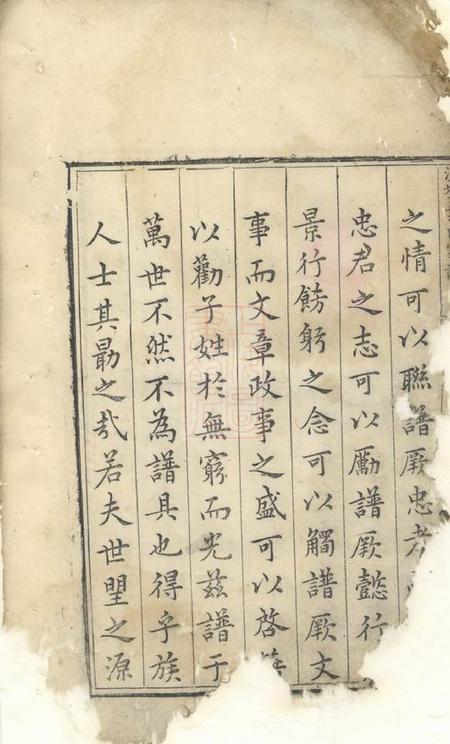 之情可以聯譜厥忠者
忠君之志可以勵譜厥懿行
景行飭躬之念可以觸譜厥文
事而文章政事之盛可以啓
以勸子姓於無窮而光茲譜于
萬世不然不為譜具也得乎族
人士其勗之㢤若夫世朢之源